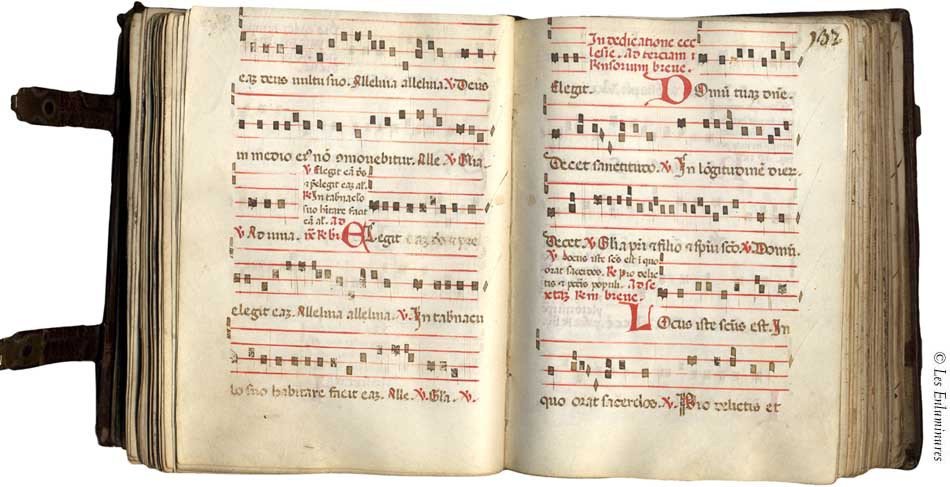 eaꝫ deus vultu suo. Alleluia alleluia. V. Deus
in medio ei⁹ nō ꝯmovebitur. Alle. V. Glia.
V. Elegit eā ds̄
et p̄elegit eaꝫ al.
R. In tabnaclo
suo hītare facit
eā al. Ad
V. Ad una. Re br̄e Elegit eaꝫ ds̄ et pre
elegit eaꝫ. Alleluia alleluia. V. In tabnacu
lo suo habitare facit eaꝫ. Alle. V. Glia. V.
132
In dedicatione ecc
lesie. Ad terciam r
Rensorium breve.
Elegit. Domū tuaꝫ dn̄e.
Decet sanctitudo. V. In lōgitudinē dier.
Decet. V. Glia pr̄i et filio et spūi sc̄o. V. Domū.
V. Locus iste sc̄s est i quo
orat sacerdos. R. Pro delic
tis et pcc̄is populi. Ad se
xtaꝫ Rem breve.
Locus iste scūs est. In
quo orat sacerdos. V. Pro delictis et
© Les Enluminures